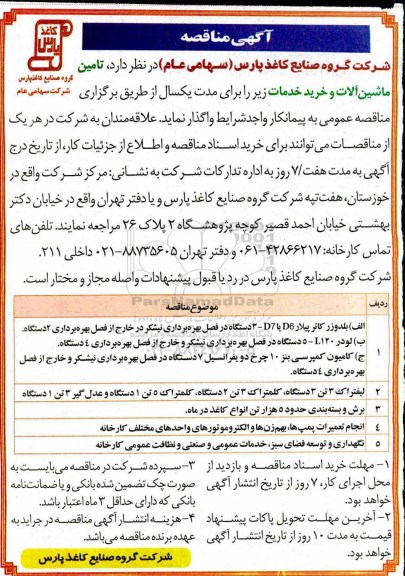 آگهی مناقصه
کاغذ پارس
گروه صنایع کاغذپارس
شرکت سهامی عام
شرکت گروه صنایع کاغذ پارس (سهامی عام) در نظر دارد، تامین
ماشین‌آلات و خرید خدمات زیر را برای مدت یکسال از طریق برگزاری
مناقصه عمومی به پیمانکار واجدشرایط واگذار نماید. علاقه‌مندان به شرکت در هر یک
از مناقصات می‌توانند برای خرید اسناد مناقصه و اطلاع از جزئیات کار، از تاریخ درج
آگهی به مدت هفت/۷ روز به اداره تدارکات شرکت به نشانی: مرکز شرکت واقع در
خوزستان، هفت‌تپه شرکت گروه صنایع کاغذ پارس و یا دفتر تهران واقع در خیابان دکتر
بهشتی خیابان احمد قصیر کوچه پژوهشگاه ۲ پلاک ۲۶ مراجعه نمایند. تلفن‌های
تماس کارخانه: ۴۲۸۶۶۲۱۷-۰۶۱ و دفتر تهران ۸۸۷۳۵۶۰۵-۰۲۱ داخلی ۲۱۱.
شرکت گروه صنایع کاغذ پارس در رد یا قبول پیشنهادات واصله مجاز و مختار است.
ردیف موضوع مناقصه
الف) بلدوزر کاتر پیلار D6 یا D7 - ۳دستگاه در فصل بهره‌برداری نیشکر در خارج از فصل بهره‌برداری ۲دستگاه.
ب) لودر L120 - ۵ دستگاه در فصل بهره‌برداری نیشکر و خارج از فصل بهره‌برداری ۴دستگاه.
۱
ج) کامیون کمپرسی بنز ۱۰ چرخ دو دیفرانسیل ۷ دستگاه در فصل بهره‌برداری نیشکر و خارج از فصل
بهره‌برداری ۴ دستگاه.
۲ لیفتراک ۳ تن ۳دستگاه، کلمتراک ۳ تن ۲دستگاه، کلمتراک ۵ تن ۱ دستگاه و عدل گیر ۳ تن ۱ دستگاه
۳ برش و بسته‌بندی حدود ۵ هزار تن انواع کاغذ در ماه.
۴ انجام تعمیرات پمپ‌ها، بهم‌زن‌ها و الکتروموتورهای واحدهای مختلف کارخانه
۵ نگهداری و توسعه فضای سبز، خدمات عمومی و صنعتی و نظافت عمومی کارخانه
۱- مهلت خرید اسناد مناقصه و بازدید از
محل اجرای کار، ۷ روز از تاریخ انتشار آگهی
خواهد بود.
۲- آخرین مهلت تحویل پاکات پیشنهاد
قیمت به مدت ۱۰ روز از تاریخ انتشار آگهی
خواهد بود.
۳- سپرده شرکت در مناقصه می‌بایست به
صورت چک تضمین شده بانکی و یا ضمانت‌نامه
بانکی که دارای حداقل ۳ ماه اعتبار باشد.
۴- هزینه انتشار آگهی مناقصه در جراید به
عهده برنده مناقصه می‌باشد.
شرکت گروه صنایع کاغذ پارس